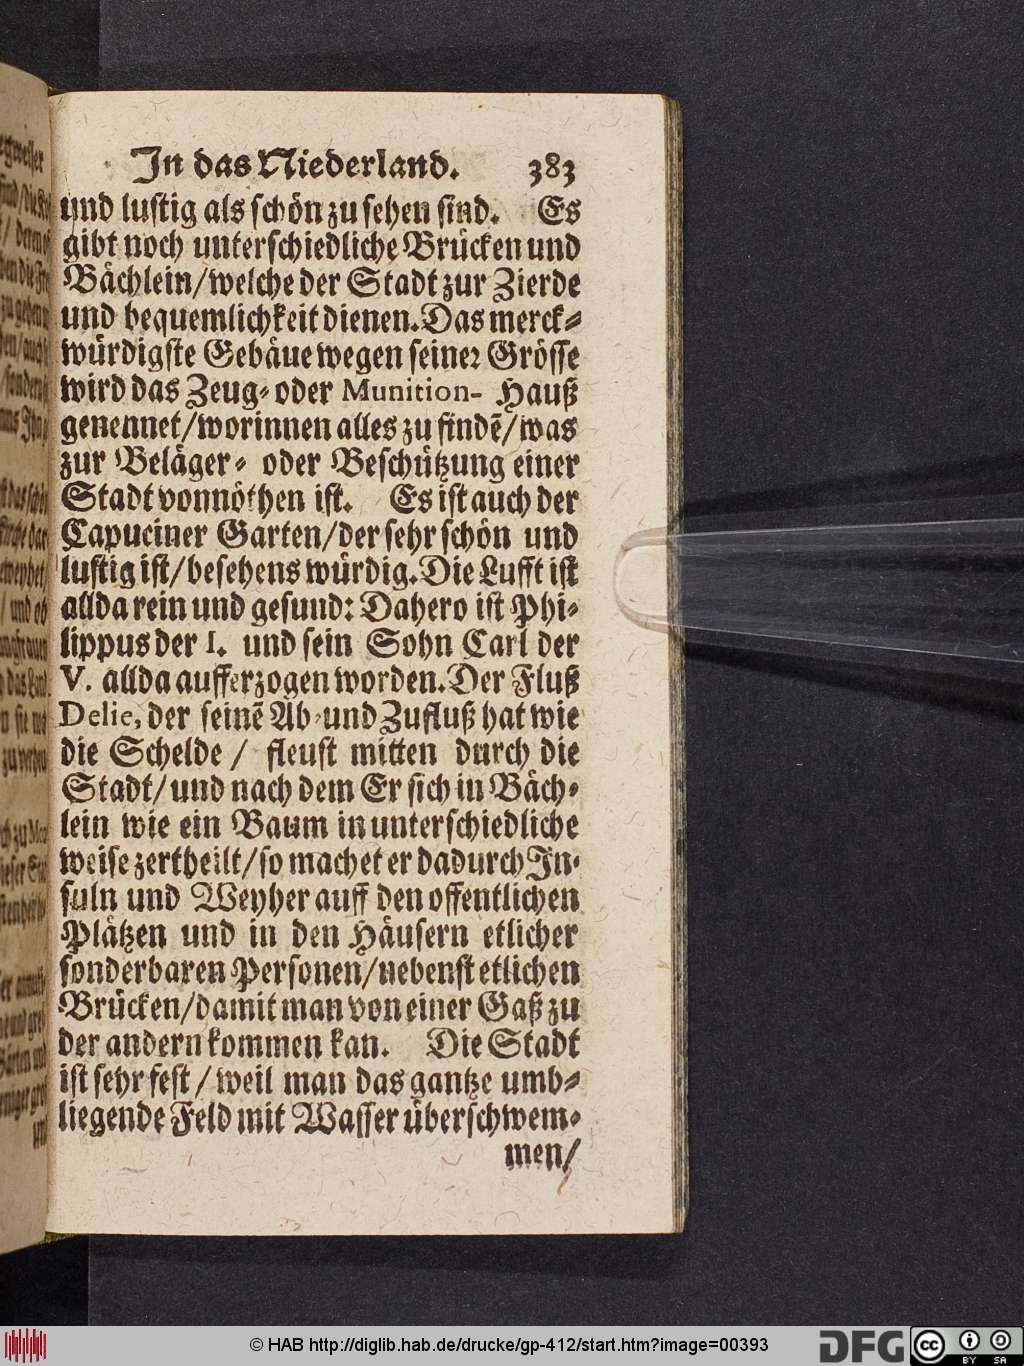 In das Niederland. 383
und lustig als schön zu sehen sind. Es
gibt noch unterschiedliche Brücken und
Bächlein/welche der Stadt zur Zierde
und bequemlichkeit dienen. Das merck-
würdigste Gebäue wegen seiner Grösse
wird das Zeug- oder Munition- Hauß
genennet/worinnen alles zu findē/was
zur Beläger- oder Beschützung einer
Stadt vonnöthen ist. Es ist auch der
Capuciner Garten/der sehr schön und
lustig ist/besehens würdig. Die Lufft ist
allda rein und gesund: Dahero ist Phi-
lippus der I. und sein Sohn Carl der
V. allda aufferzogen worden. Der Fluß
Delie, der seinē Ab- und Zufluß hat wie
die Schelde / fleust mitten durch die
Stadt/und nach dem Er sich in Bäch-
lein wie ein Baum in unterschiedliche
weise zertheilt/so machet er dadurch In-
suln und Weyher auff den offentlichen
Plätzen und in den Häusern etlicher
sonderbaren Personen/nebenst etlichen
Brücken/damit man von einer Gaß zu
der andern kommen kan. Die Stadt
ist sehr fest / weil man das gantze umb-
liegende Feld mit Wasser überschwem-
men/
© HAB http://diglib.hab.de/drucke/gp-412/start.htm?image=00393
DFG
cc BY SA